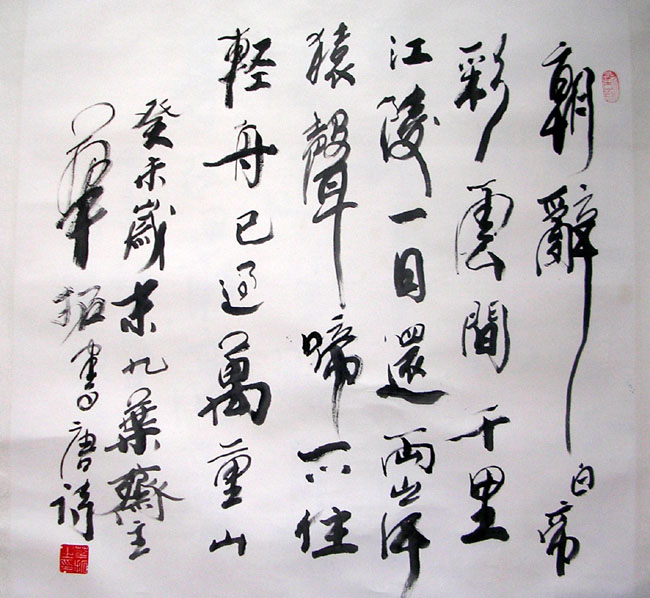 朝辭白帝
彩雲間千里
江陵一日還兩岸
猿聲啼不住
輕舟已過萬重山
癸未歲末九葉齋主
拓書唐詩